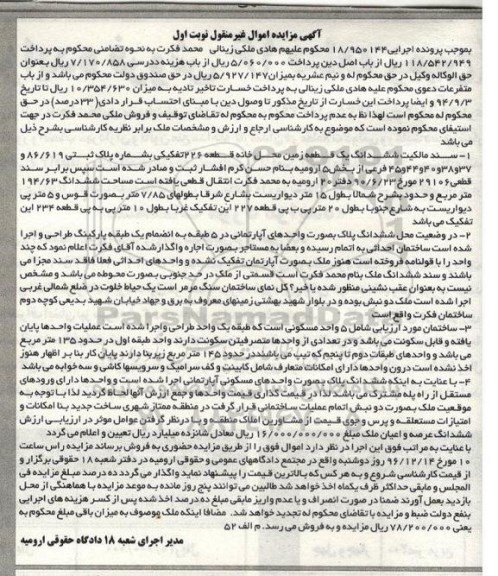 آگهی مزایده اموال غیرمنقول نوبت اول
بموجب پرونده اجرایی ۱۸/۹۵۰۱۴۴ محکوم علیهم هادی ملکی زینالی محمد فکرت به نحوه تضامنی محکوم به پرداخت
۱۱۸/۵۴۲/۹۴۹ ریال از باب اصل دین پرداخت ۵/۰۶۰/۰۰۰ ریال از باب هزینه دادرسی ۷/۱۷۰/۸۵۸ ریال بعنوان
حق الوکاله وکیل در حق محکوم له و نیم عشر به میزان ۵/۹۲۷/۱۴۷ ریال در حق صندوق دولت محکوم می باشد و از باب
متفرعات دعوی محکوم علیه هادی ملکی زینالی به پرداخت خسارت تاخیر تادیه به میزان ۱۰/۳۵۴/۶۳۰ ریال تا تاریخ
۹۴/۹/۳ و ایضا پرداخت این خسارت از تاریخ مذکور تا وصول دین با مبنای احتساب قرار دادی( ۳۳درصد) در حق
محکوم له محکوم است لذا نظر به عدم پرداخت محکوم به محکوم له تقاضای توقیف و فروش ملکی محمد فکرت در جهت
استیفای محکوم نموده است که موضوع به کارشناسی ارجاع و ارزش و مشخصات ملک برابر نظریه کارشناسی بشرح ذیل
می باشد
۱- سند مالکیت ششدانگ یک قطعه زمین محل خانه قطعه ۲۲۶تفکیکی بشماره پلاک ثبتی ۸۶/۶۱۹ و
۳۷و۳۸و۴۰و۴۴و۴۵ فرعی از بخش۵ ارومیه بنام حسن کرم افشار ثبت و صادر شده است سپس برابر سند
قطعی ۲۹۱۰۶ مورخ ۹۰/۶/۲۳ دفتر ۲۰ ارومیه به محمد فکرت انتقال قطعی یافته است مساحت ششدانگ ۱۹۴/۶۳
متر مربع و حدود بشرح شمالا بطول ۱۵ متر دیواریست بشارع شرقا بطولهای ۷/۸۵ متر بصورت قوس و ۵ متر پی
دیواریست به شارع جنوبا بطول ۲۰ متر پی به پی قطعه ۲۲۷ این تفکیک غربا بطول ۱۰ متر پی به پی قطعه ۲۳۴ این
تفکیک می باشد
۲- در وضعیت محل ششدانگ پلاک بصورت واحدهای آپارتمانی در ۵ طبقه به انضمام یک طبقه پارکینگ طراحی و اجرا
شده است ساختمان احداثی به اتمام رسیده و بعضا به مستاجر بصورت اجاره واگذار شده آقای فکرت اعلام نمود که چند
واحد را با قولنامه فروخته است هنوز ملک بصورت آپارتمان تفکیک نشده و واحدهای احداثی فعلا فاقد سند مجزا می
باشند و سند ششدانگ ملک بنام محمد فکرت است قسمتی از ملک در حد جنوبی بصورت محوطه می باشد و مشخص
نیست به بعنوان عقب نشینی منظور شده یا خیر؟ کل نمای ساختمان سنگ مرمر است یک حیاط خلوت در ضلع شمالی غربی
اجرا شده است ملک دو نبش بوده و در بلوار شهید بهشتی زمینهای معروف به برق و جهاد خیابان شهید بدیعی کوچه دوم
ساختمان فکرت واقع است
۳- ساختمان مورد ارزیابی شامل ۵ واحد مسکونی است که طبقه یک واحد طراحی و اجرا شده است عملیات واحدها پایان
یافته و قابل سکونت می باشد و در تعدادی از واحدها متصرفین سکونت دارند واحد طبقه اول در حدود ۱۳۵ متر مربع
می باشد و واحدهای طبقات دوم تا پنجم که تیپ می باشند در حدود ۱۴۵ متر مربع زیربنا دارند پایان کار بنا بر اظهار هنوز
اخذ نشده است درون واحدها دارای امکانات متعارف شامل کابینت و کف سرامیک و سرویسها کاشی و سه خوابه می باشد
۴- با عنایت به اینکه ششدانگ پلاک بصورت واحدهای مسکونی آپارتمانی اجرا شده است و واحدها دارای ورودهای
مستقل از راه پله مشترک می باشد لذا در قیمت گذاری قیمت واحدها و جمع ارزش آنها لحاظ گردید لذا با توجه به
موقعیت ملک بصورت دو نبش اتمام عملیات ساختمانی قرار گرفت در منطقه ممتاز شهری ساخت جدید بنا امکانات و
امتیازات متعلقه و پرس و جوی قیمت از مشاورین املاک منطقه و با در نظر گرفتن عوامل موثر در ارزیابی ارزش
ششدانگ عرصه و اعیان ملک مبلغ ۱۶/۰۰۰/۰۰۰/۰۰۰ ریال معادل شانزده میلیارد ریال تعیین و اعلام می گردد
با عنایت به مراتب فوق این اجرا در نظر دارد اموال فوق را از طریق مزایده حضوری به فروش برساند مزایده راس ساعت
۱۰ مورخ ۹۶/۱۲/۱۴ روز دوشنبه واقع در مجتمع دادگاههای عمومی و حقوقی ارومیه در دفتر شعبه ۱۸ حقوقی برگزار و
از قیمت کارشناسی شروع و به هر کس که بالاترین قیمت را پیشنهاد نماید واگذار می گردد ده درصد مبلغ مزایده فی
المجلس و مابقی حداکثر ظرف یکماه اخذ خواهد شد طالبین می توانند پنج روز مانده به موعد مزایده با هماهنگی از محل
بازدید بعمل آورند ضمنا در صورت انصراف و یا عدم واریز مابقی مبلغ ده درصد اخذ شده پس از کسر هزینه های اجرایی
بنفع دولت ضبط و مزایده با تقاضای محکوم له تجدید خواهد شد. مضافا اینکه ملک موصوف به میزان باقی مبلغ محکوم به
یعنی ۷۸/۲۰۰/۰۰۰ ریال مزایده و به فروش می رسد. م الف ۵۲
مدیر اجرای شعبه ۱۸ دادگاه حقوقی ارومیه
ParsNamadData